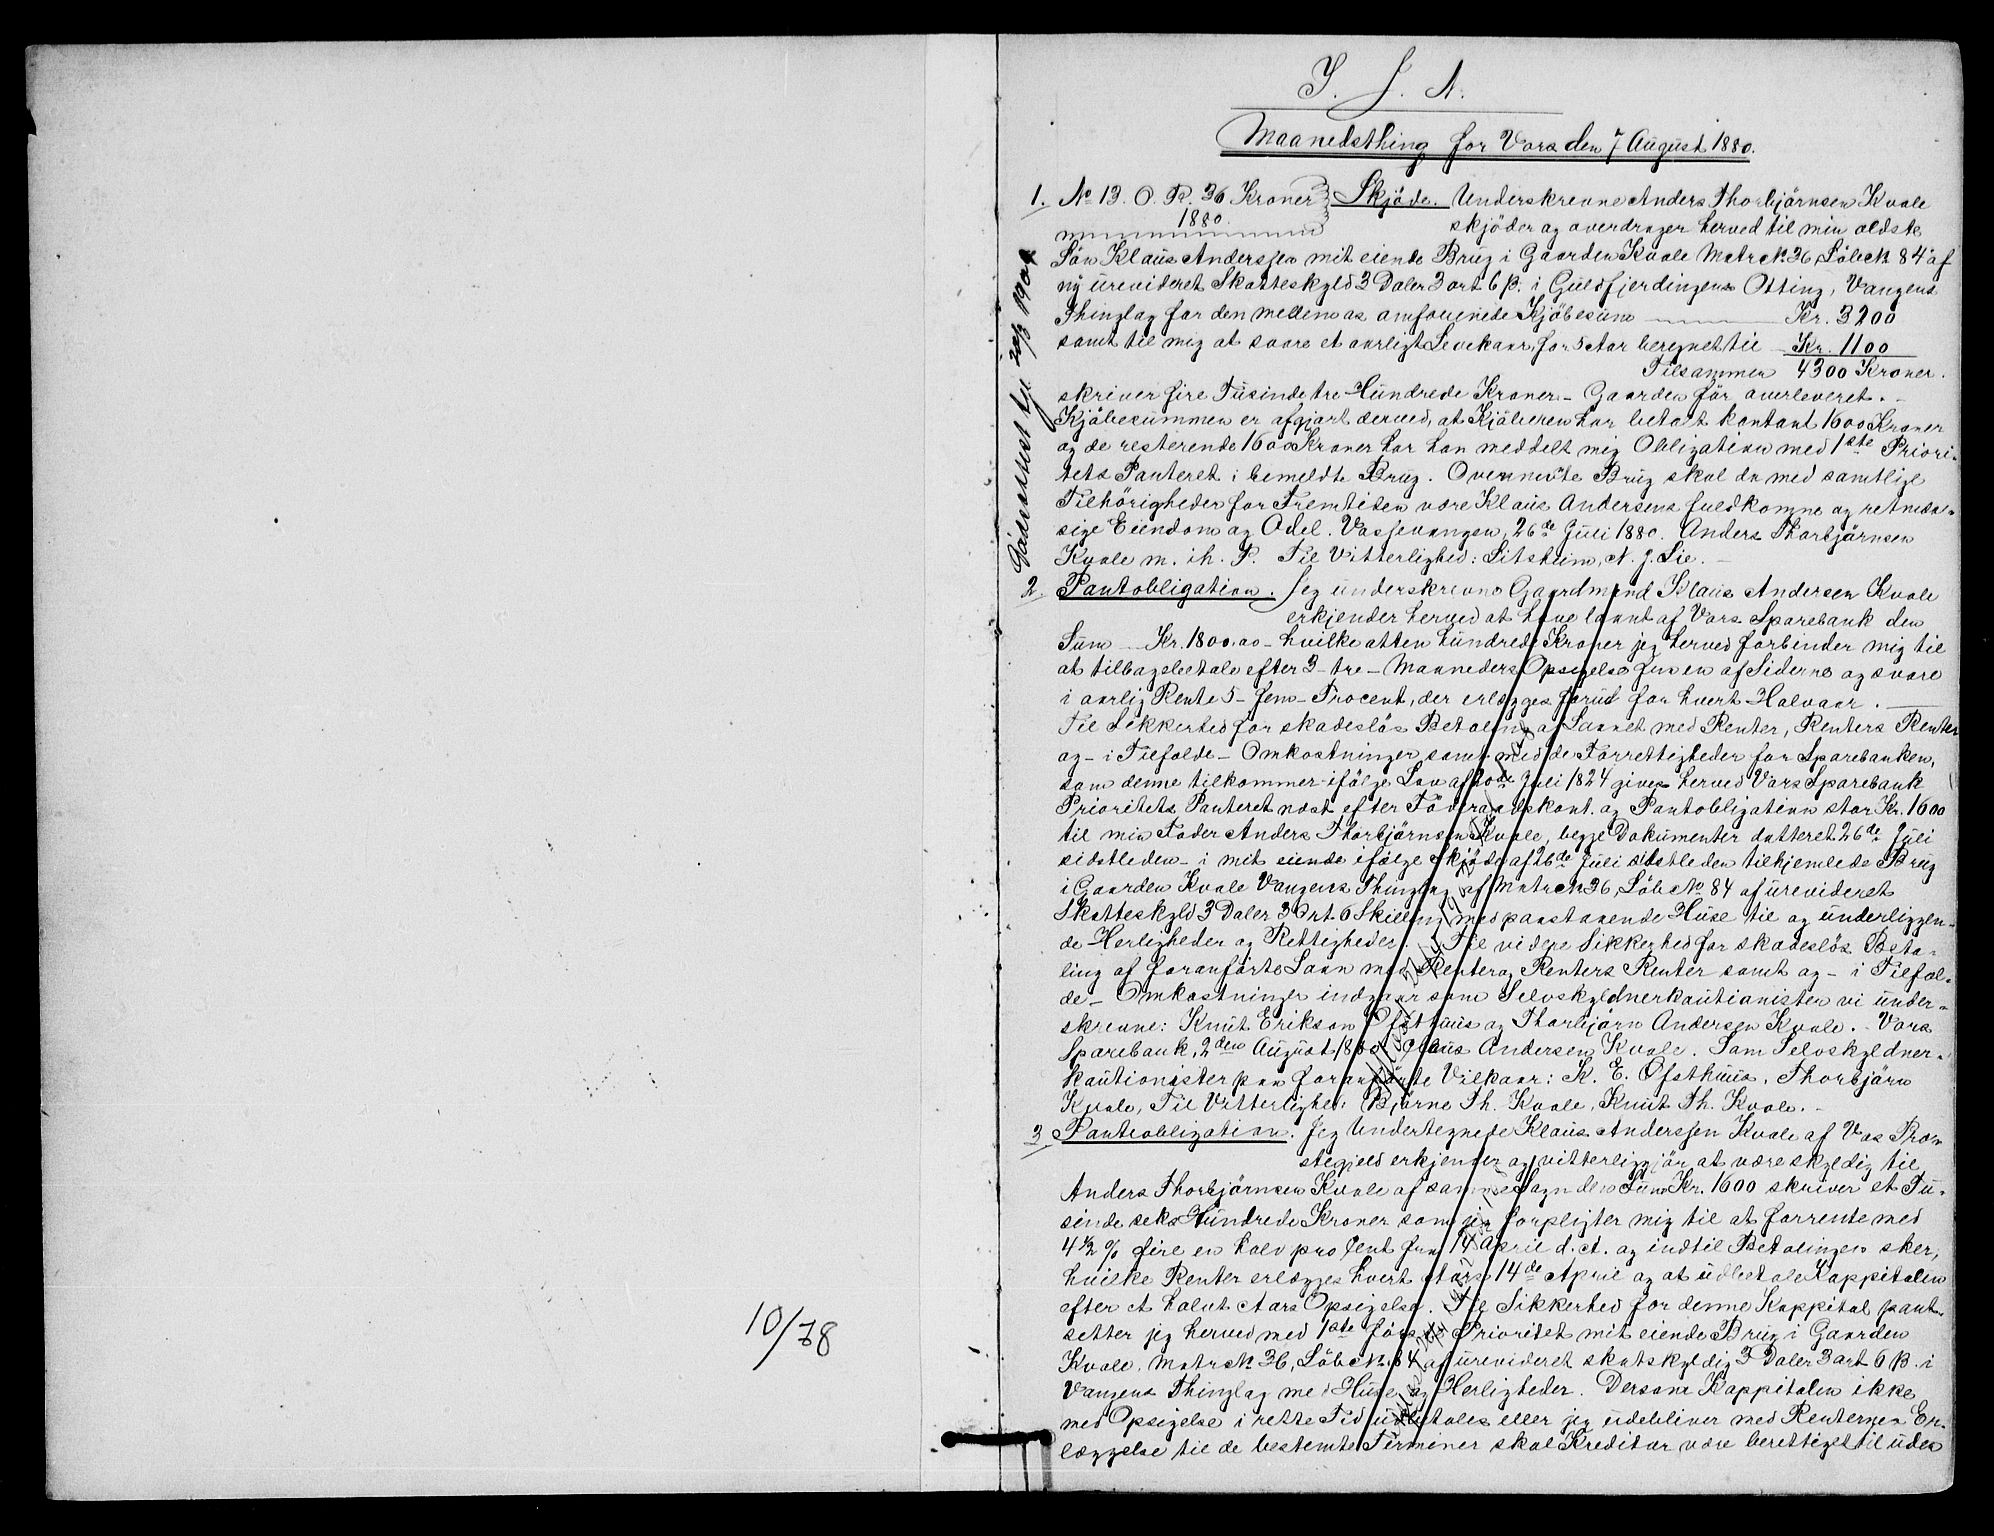 I. J. N.
Maanedsthing for Vors den 7 August 1880.
1. No 13. O. R. 36 Kroner Skjöde. Underskrevne Anders Thorbjörnsen Kvale
1880. skjöder og overdrager herved til min ældste
Sön Klaus Anderssen mit eiende Brug i Gaarden Kvale Matr No 36, Löbe No 84 af
ny urevideret Skatteskyld 3 Daler 3 ort 6 β. i Guldfjerdingens Otting, Vangens
Thinglag for den mellem os omforenede Kjöbesum Kr. 3200
samt til mig at svare et aarligt Levekaar, for 5 Aar beregnet til Kr. 1100
Tilsammen 4300 Kroner.
skriver fire Tusinde tre Hundrede Kroner - Gaarden för overleveret. -
Kjöbesummen er afgjort derved, at Kjöberen har betalt kontant 1600 Kroner
og de resterende 1600 Kroner har han meddelt mig Obligation med 1ste Priori-
tets Panteret i bemeldte Brug. Overnævnte Brug skal da med samtlige
Tilhörigheder for Fremtiden være Klaus Andersens fuldkomne og retmæs-
sige Eiendom og Odel. Vossevangen, 26de Juli 1880. Anders Thorbjörnsen
Kvale m. i h. P. Til Vitterlighed: Litsheim, N. J. Lie. -
Gaardattest til 28/3 1904
2. Pantobligation. Jeg underskrevne Gaardmand Klaus Andersen Kvale
erkjender herved at have laant af Vors Sparebank den
Sum Kr. 1800.00 - hvilke atten hundrede Kroner jeg herved forbinder mig til
at tilbagebetale efter 3 - tre - Maaneders Opsigelse fra en af Siderne og svare
i aarlig Rente 5 - fem - Procent, der erlægges forud for hvert Halvaar.
Til Sikkerhed for skadeslös Betaling af Laanet med Renter, Renters Renter
og - i Tilfælde - Omkostninger samt med de Forrettigheder for Sparebanken,
som denne tilkommer ifölge Lov af 20de Juli 1824 gives herved Vors Sparebank
Prioritets Panteret næst efter Föderaadskont. og Pantobligation stor Kr. 1600
til min Fader Anders Thorbjörnsen Kvale, begge Dokumenter datteret 26de Juli
sidstleden - i mit eiende ifölge Skjöde af 26de Juli sidstleden tilhjemlede Brug
i Gaarden Kvale Vangens Thinglag af Matr No 36, Löbe No 84 af urevideret
Skatteskyld 3 Daler 3 Ort 6 Skilling med paastaaende Huse til og underliggen-
de Herligheder og Rettigheder. Til videre Sikkerhed for skadeslös Beta-
ling af foranförte Laan med Renter og Renters Renter samt og - i Tilfæl-
de - Omkostninger indgaar som Selvskyldnerkautionister vi under-
skrevne: Knut Erikson Ofsthuus og Thorbjörn Andersen Kvale. - Vors
Sparebank, 2den August 1880. Claus Andersen Kvale. Som Selvskyldner-
kautionister paa foranförte Vilkaar: K. E. Ofsthuus, Thorbjörn
Kvale, Til Vitterlighed: Björne Th. Kvale, Knut Th. Kvale. -
3. Panteobligation. Jeg Undertegnede Klaus Anderssen Kvale af Vos Præ-
stegjeld erkjender og vitterliggjör at være skyldig til
Anders Thorbjörnsen Kvale af samme Sogn den Sum Kr. 1600 skriver et Tu-
sinde seks Hundrede Kroner som jeg forpligter mig til at forrente med
4 1/2 % fire en halv pro Cent fra 14 April d. A. og indtil Betalingen sker,
hvilke Renter erlægges hvert Aars 14de April og at udbetale Kappitalen
efter et halvt Aars Opsigelse. Til Sikkerhed for denne Kappital pant-
setter jeg herved med 1ste förste Prioritet mit eiende Brug i Gaarden
Kvale, Matr No 36, Löbe No 84 af urevideret skatskyldig 3 Daler 3 ort 6 β. i
Vangens Thinglag med Huse og Herligheder. Dersom Kappitalen ikke
med Opsigelse i rette Tid udbetales eller jeg udebliver med Renternes Er-
læggelse til de bestemte Terminer skal Kreditor være berettiget til uden
10/78